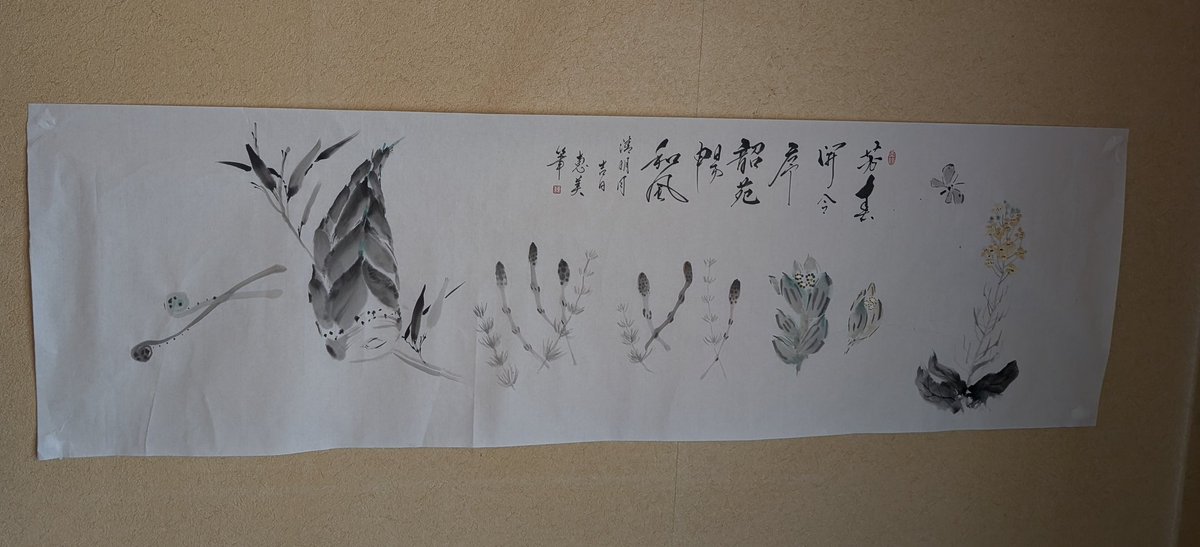 芳春
開令
序
韶苑
暢
和風
清明月
吉日
惠美
筆